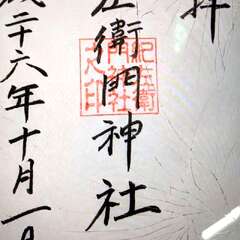 拝
左衛門神社
紀左衛
門神社
之印
成二十六年十月一日